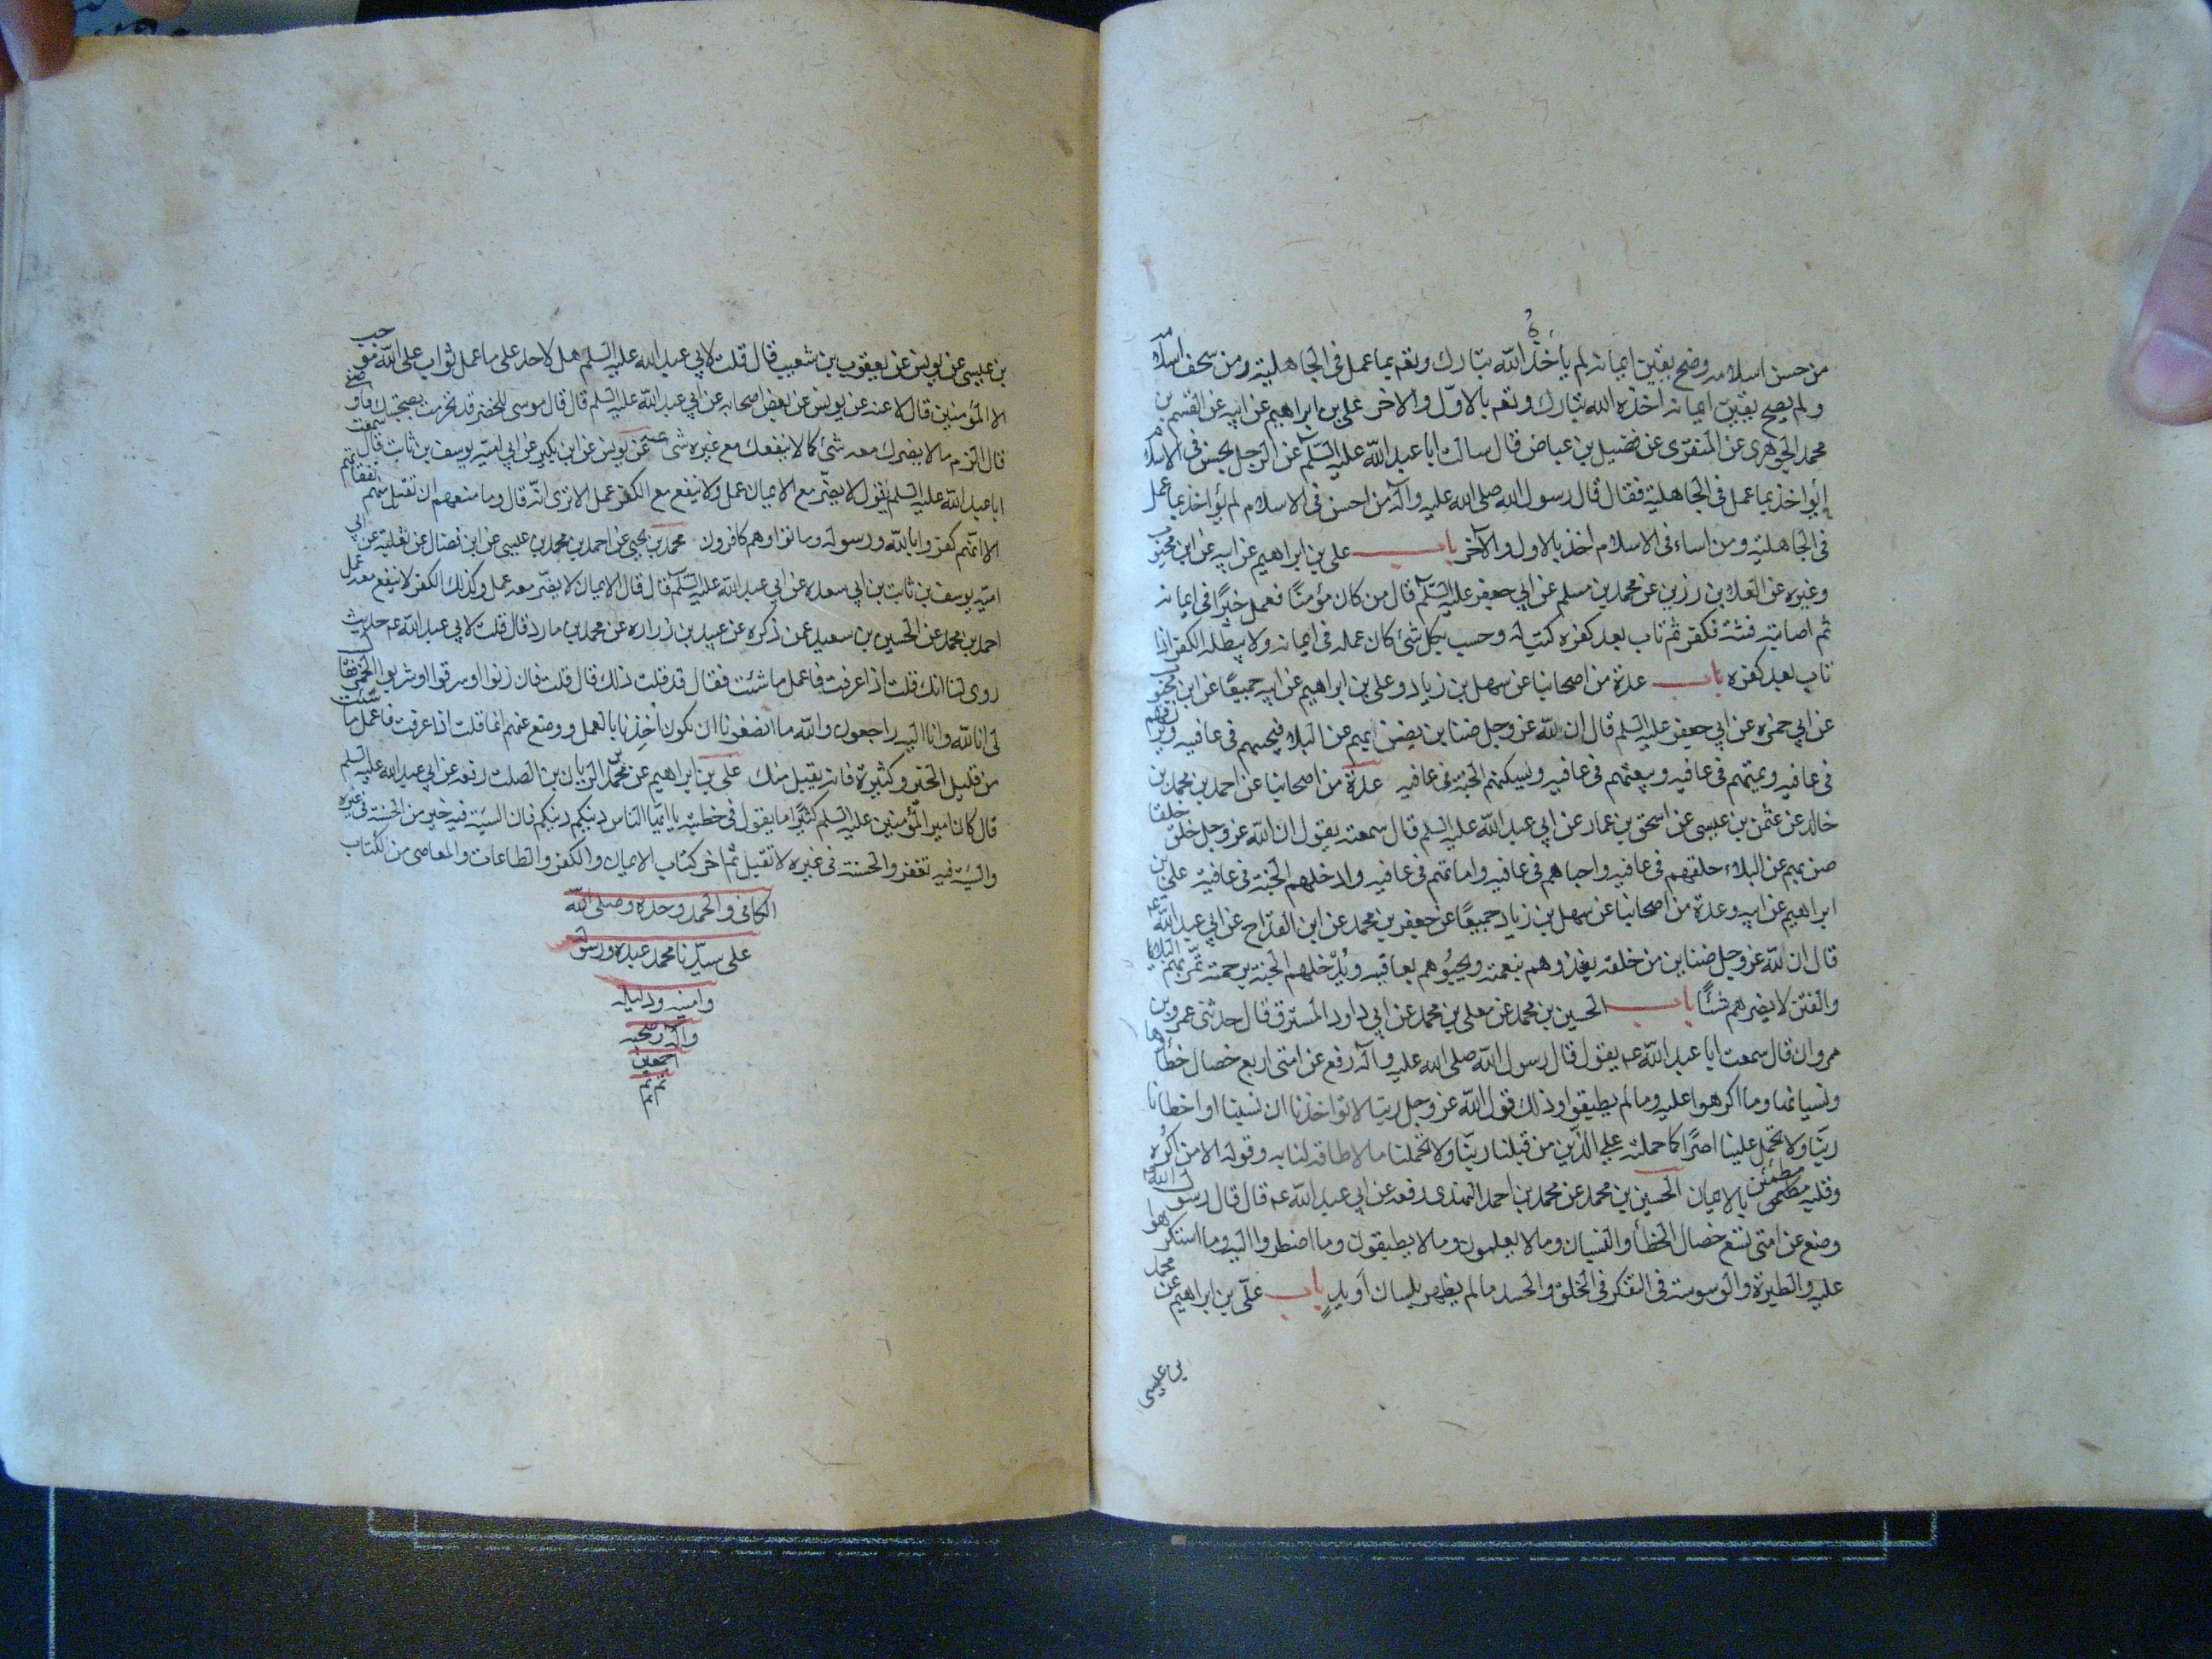 من حسن اسلامه وصح يقين ايمانه لم يأخذه الله تبارك وتعم بما عمل فى الجاهلية ومن سخف اسلامه
ولم يصح يقين ايمانه اخذه الله تبارك وتعم بالاول والاخر على بن ابراهيم عن ابيه عن القسم بن
محمد الجوهرى عن المنقرى عن فضيل بن عياض قال سالت ابا عبد الله عليه السلم عن الرجل يحسن فى الاسلام
ايؤاخذ بما عمل فى الجاهلية فقال قال رسول الله صلى الله عليه وآله من احسن فى الاسلام لم يؤاخذ بما عمل
فى الجاهلية ومن اساء فى الاسلام اخذ بالاول والآخر باب على بن ابراهيم عن ابيه عن ابن محبوب
وغيره عن العلا بن رزين عن محمد بن مسلم عن ابي جعفر عليه السلم قال من كان مؤمنًا فعمل خيرًا فى ايمانه
ثم اصابته فتنة فكفر ثم تاب بعد كفره كتب له وحسب بكل شئ كان عمله فى ايمانه ولا يبطله الكفر اذا
تاب بعد كفره باب عدة من اصحابنا عن سهل بن زياد وعلى بن ابراهيم عن ابيه جميعًا عن ابن محبوب
عن ابي حمزه عن ابي جعفر عليه السلم قال ان لله عز وجل ضناين يضن بهم عن البلا فيحييهم فى عافيه ويرزقهم
فى عافيه ويميتهم فى عافيه ويبعثهم فى عافيه ويسكنهم الجنة فى عافيه عدة من اصحابنا عن احمد بن محمد بن
خالد عن عثمن بن عيسى عن اسحق بن عمار عن ابي عبد الله عليه السلم قال سمعته يقول ان الله عز وجل خلق خلقا
ضن بهم عن البلاء خلقهم فى عافيه واحياهم فى عافيه واماتهم فى عافيه وادخلهم الجنة فى عافية على بن
ابراهيم عن ابيه وعدة من اصحابنا عن سهل بن زياد جميعًا عن جعفر بن محمد عن ابن القداح عن ابي عبد الله عم
قال ان لله عز وجل ضناين من خلقه يغذوهم بنعمته ويحبوهم بعافيه ويدخلهم الجنة برحمته تمر بهم البلايا
والفتن لا يضرهم شئًا باب الحسين بن محمد عن معلى بن محمد عن ابي داود المسترق قال حدثنى عمرو بن
مروان قال سمعت ابا عبد الله عم يقول قال رسول الله صلى الله عليه وآله رفع عن امتى اربع خصال خطاها
ونسيانها وما اكرهوا عليه وما لم يطيقوا وذلك قول الله عز وجل ربنا لا تؤاخذنا ان نسينا او اخطانا
ربنا ولا تحمل علينا اصرًا كما حملته على الذين من قبلنا ربنا ولا تحملنا ما لا طاقه لنا به وقوله الا من اكره
وقلبه مطمئن بالايمان الحسين بن محمد عن محمد بن احمد النهدى رفعه عن ابي عبد الله عم قال قال رسول الله
وضع عن امتى تسع خصال الخطأ والنسيان وما لا يعلمون وما لا يطيقون وما اضطروا اليه وما استكرهوا
عليه والطيرة والوسوسة فى التفكر فى الخلق والحسد ما لم يظهر بلسان او يدٍ باب على بن ابراهيم عن محمد
بن عيسى
بن عيسى عن يونس عن يعقوب بن شعيب قال قلت لابي عبد الله عليه السلم هل لاحد على ما عمل ثواب على الله موجب
الا المؤمنين قال لا عنه عن يونس عن بعض اصحابه عن ابي عبد الله عليه السلم قال قال موسى للخضر قد تحرمت بصحبتك فاوصنى
قال الزم ما لا يضرك معه شئ كما لا ينفعك مع غيره شئ عنه عن يونس عن ابن بكير عن ابي اميه يوسف بن ثابت قال سمعت
ابا عبد الله عليه السلم يقول لا يضر مع الايمان عمل ولا ينفع مع الكفر عمل الا ترى انه قال وما منعهم ان تقبل منهم نفقاتهم
الا انهم كفروا بالله ورسوله وماتوا وهم كافرون محمد بن يحيى عن احمد بن محمد بن عيسى عن ابن فضال عن ثعلبة عن ابي
اميه يوسف بن ثابت بن ابي سعده عن ابي عبد الله عليه السلم قال قال الايمان لا يضر معه عمل وكذلك الكفر لا ينفع معه عمل
احمد بن محمد عن الحسين بن سعيد عمن ذكره عن عبيد بن زراره عن محمد بن مارد قال قلت لابي عبد الله عم حديث
روى لنا انك قلت اذا عرفت فاعمل ما شئت فقال قد قلت ذلك قال قلت فان زنوا او سرقوا او شربوا الخمر فقال
لى انا لله وانا اليه راجعون والله ما انصفونا ان نكون اُخِذنا بالعمل ووضع عنهم انما قلت اذا عرفت فاعمل ما شئت
من قليل الخير وكثيرة فانه يقبل منك على بن ابراهيم عن محمد بن الريان بن الصلت رفعه عن ابي عبد الله عليه السلم
قال كان امير المؤمنين عليه السلم كثيرًا ما يقول فى خطبته يا ايها الناس دينكم دينكم فان السيئة فيه خير من الحسنة فى غيره
والسيئة فيه تغفر والحسنة فى غيره لا تقبل تم اخر كتاب الايمان والكفر والطاعات والمعاصى من الكتاب
الكافى والحمد وحده وصلى الله
على سيدنا محمد عبده ورسوله
وامينه ودليله
وآله وصحبه
اجمعين
تم تم
تم